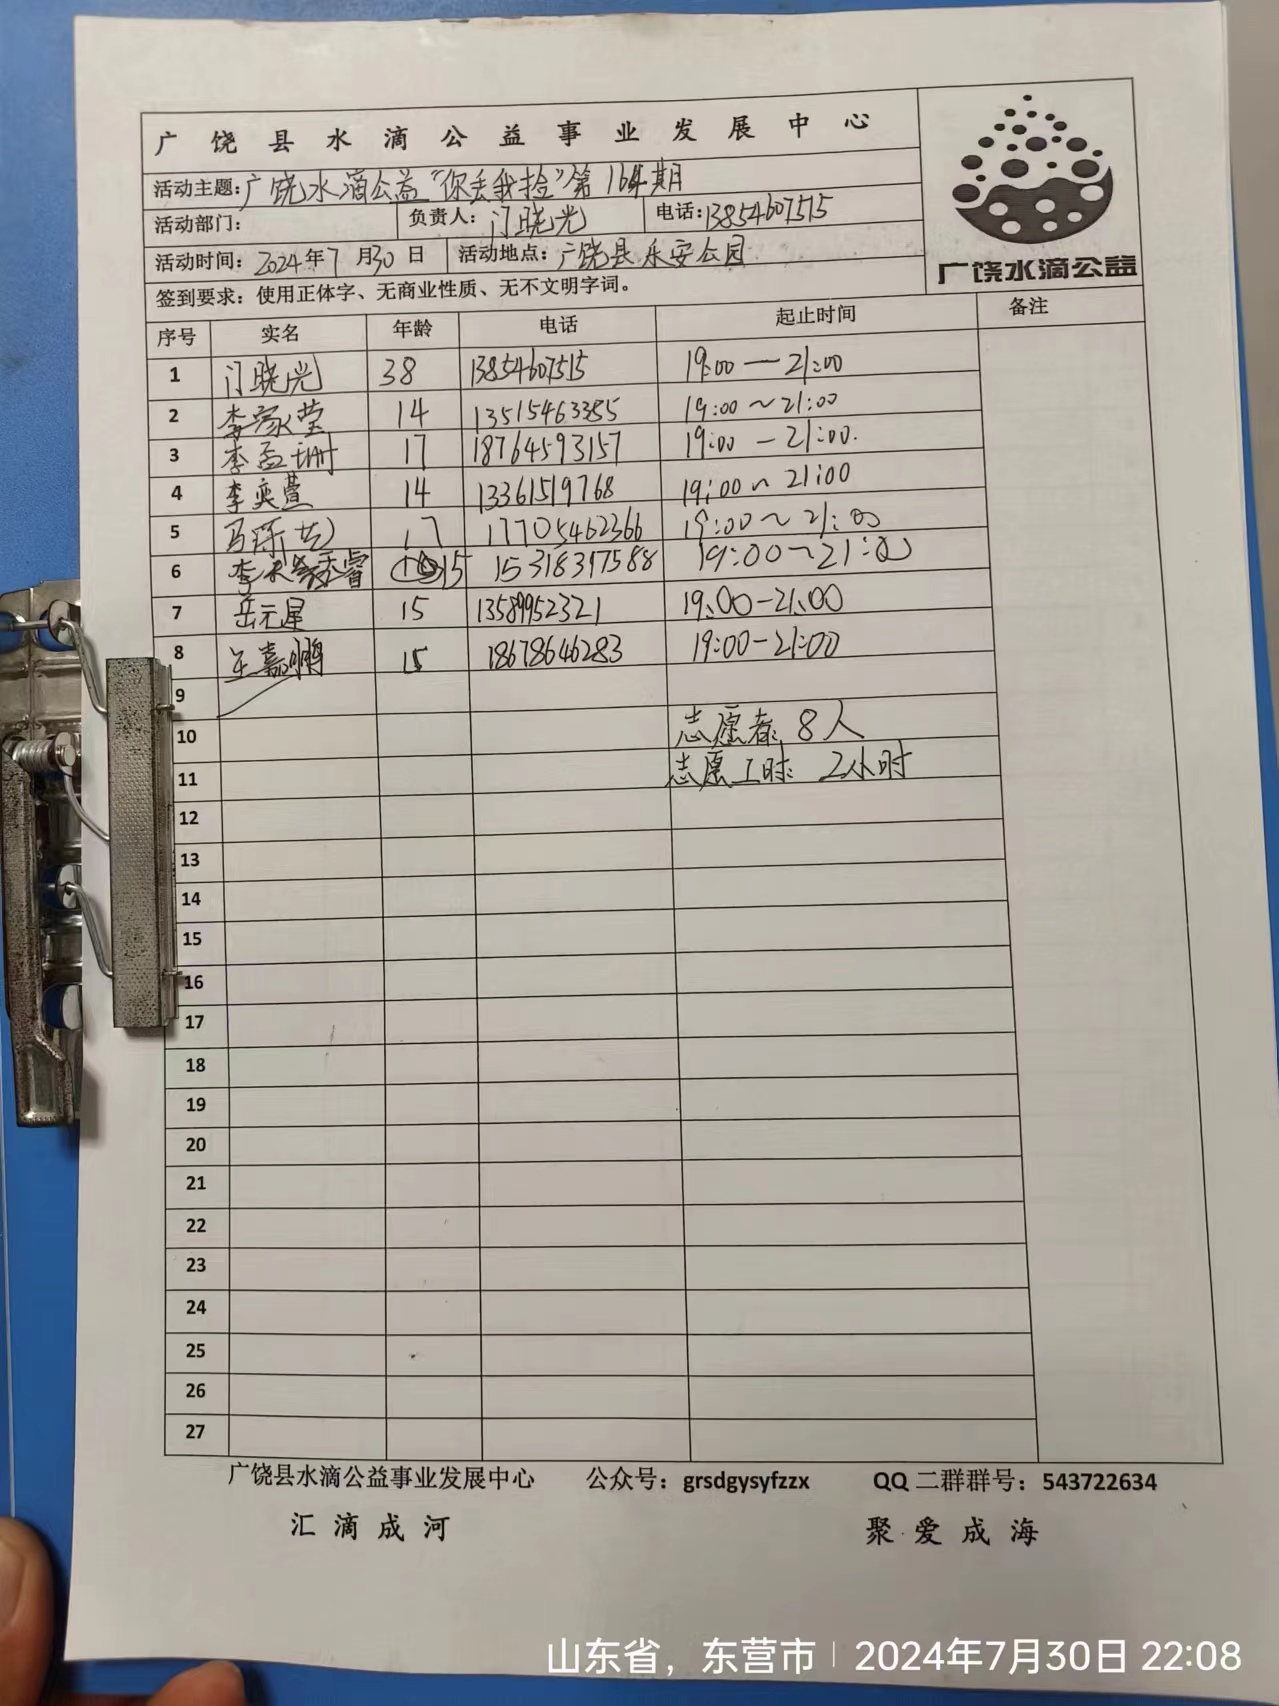 广饶县水滴公益事业发展中心
活动主题:广饶水滴公益"你丢我捡"第164期
活动部门: 负责人:门晓光 电话:13854607515
活动时间:2024年7月30日 活动地点:广饶县乐安公园
广饶水滴公益
签到要求:使用正体字、无商业性质、无不文明字词。
序号 实名 年龄 电话 起止时间 备注
1 门晓光 38 13854607515 19:00—21:00
2 李家莹 14 13515463385 19:00~21:00
3 李孟珊 17 18764593157 19:00-21:00.
4 李奕萱 14 13361519768 19:00~21:00
5 17 17705462366 19:00~21:00
6 15 15318317588 19:00~21:00
7 岳元星 15 13589952321 19:00-21:00
8 王嘉鹏 15 18678646283 19:00-21:00
9
10 志愿者:8人
11 志愿工时:2小时
12
13
14
15
16
17
18
19
20
21
22
23
24
25
26
27
广饶县水滴公益事业发展中心 公众号:grsdgysyfzzx QQ二群群号:543722634
汇滴成河 聚爱成海
山东省,东营市 2024年7月30日 22:08